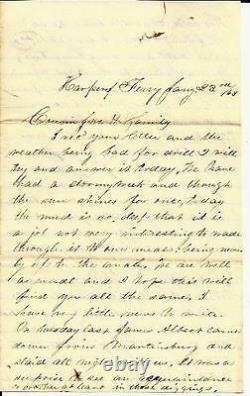 Harpers Ferry Jany 22nd /63
Cousin & Family
I recd your letter and the
weather being bad for drill I will
try and answer it to day. We have
had a stormy week and though
the sun shines for one to day
the mud is so deep that it is
a job not very interesting to wade
through it
up to the We are well
as usual and I hope this will
find you all the same. I
have very little news to write.
On Tuesday last James Albert came
down from Martinsburg and
staid all night with us. It was a
surprise to see an acquaintance
or other at least in these diggings.